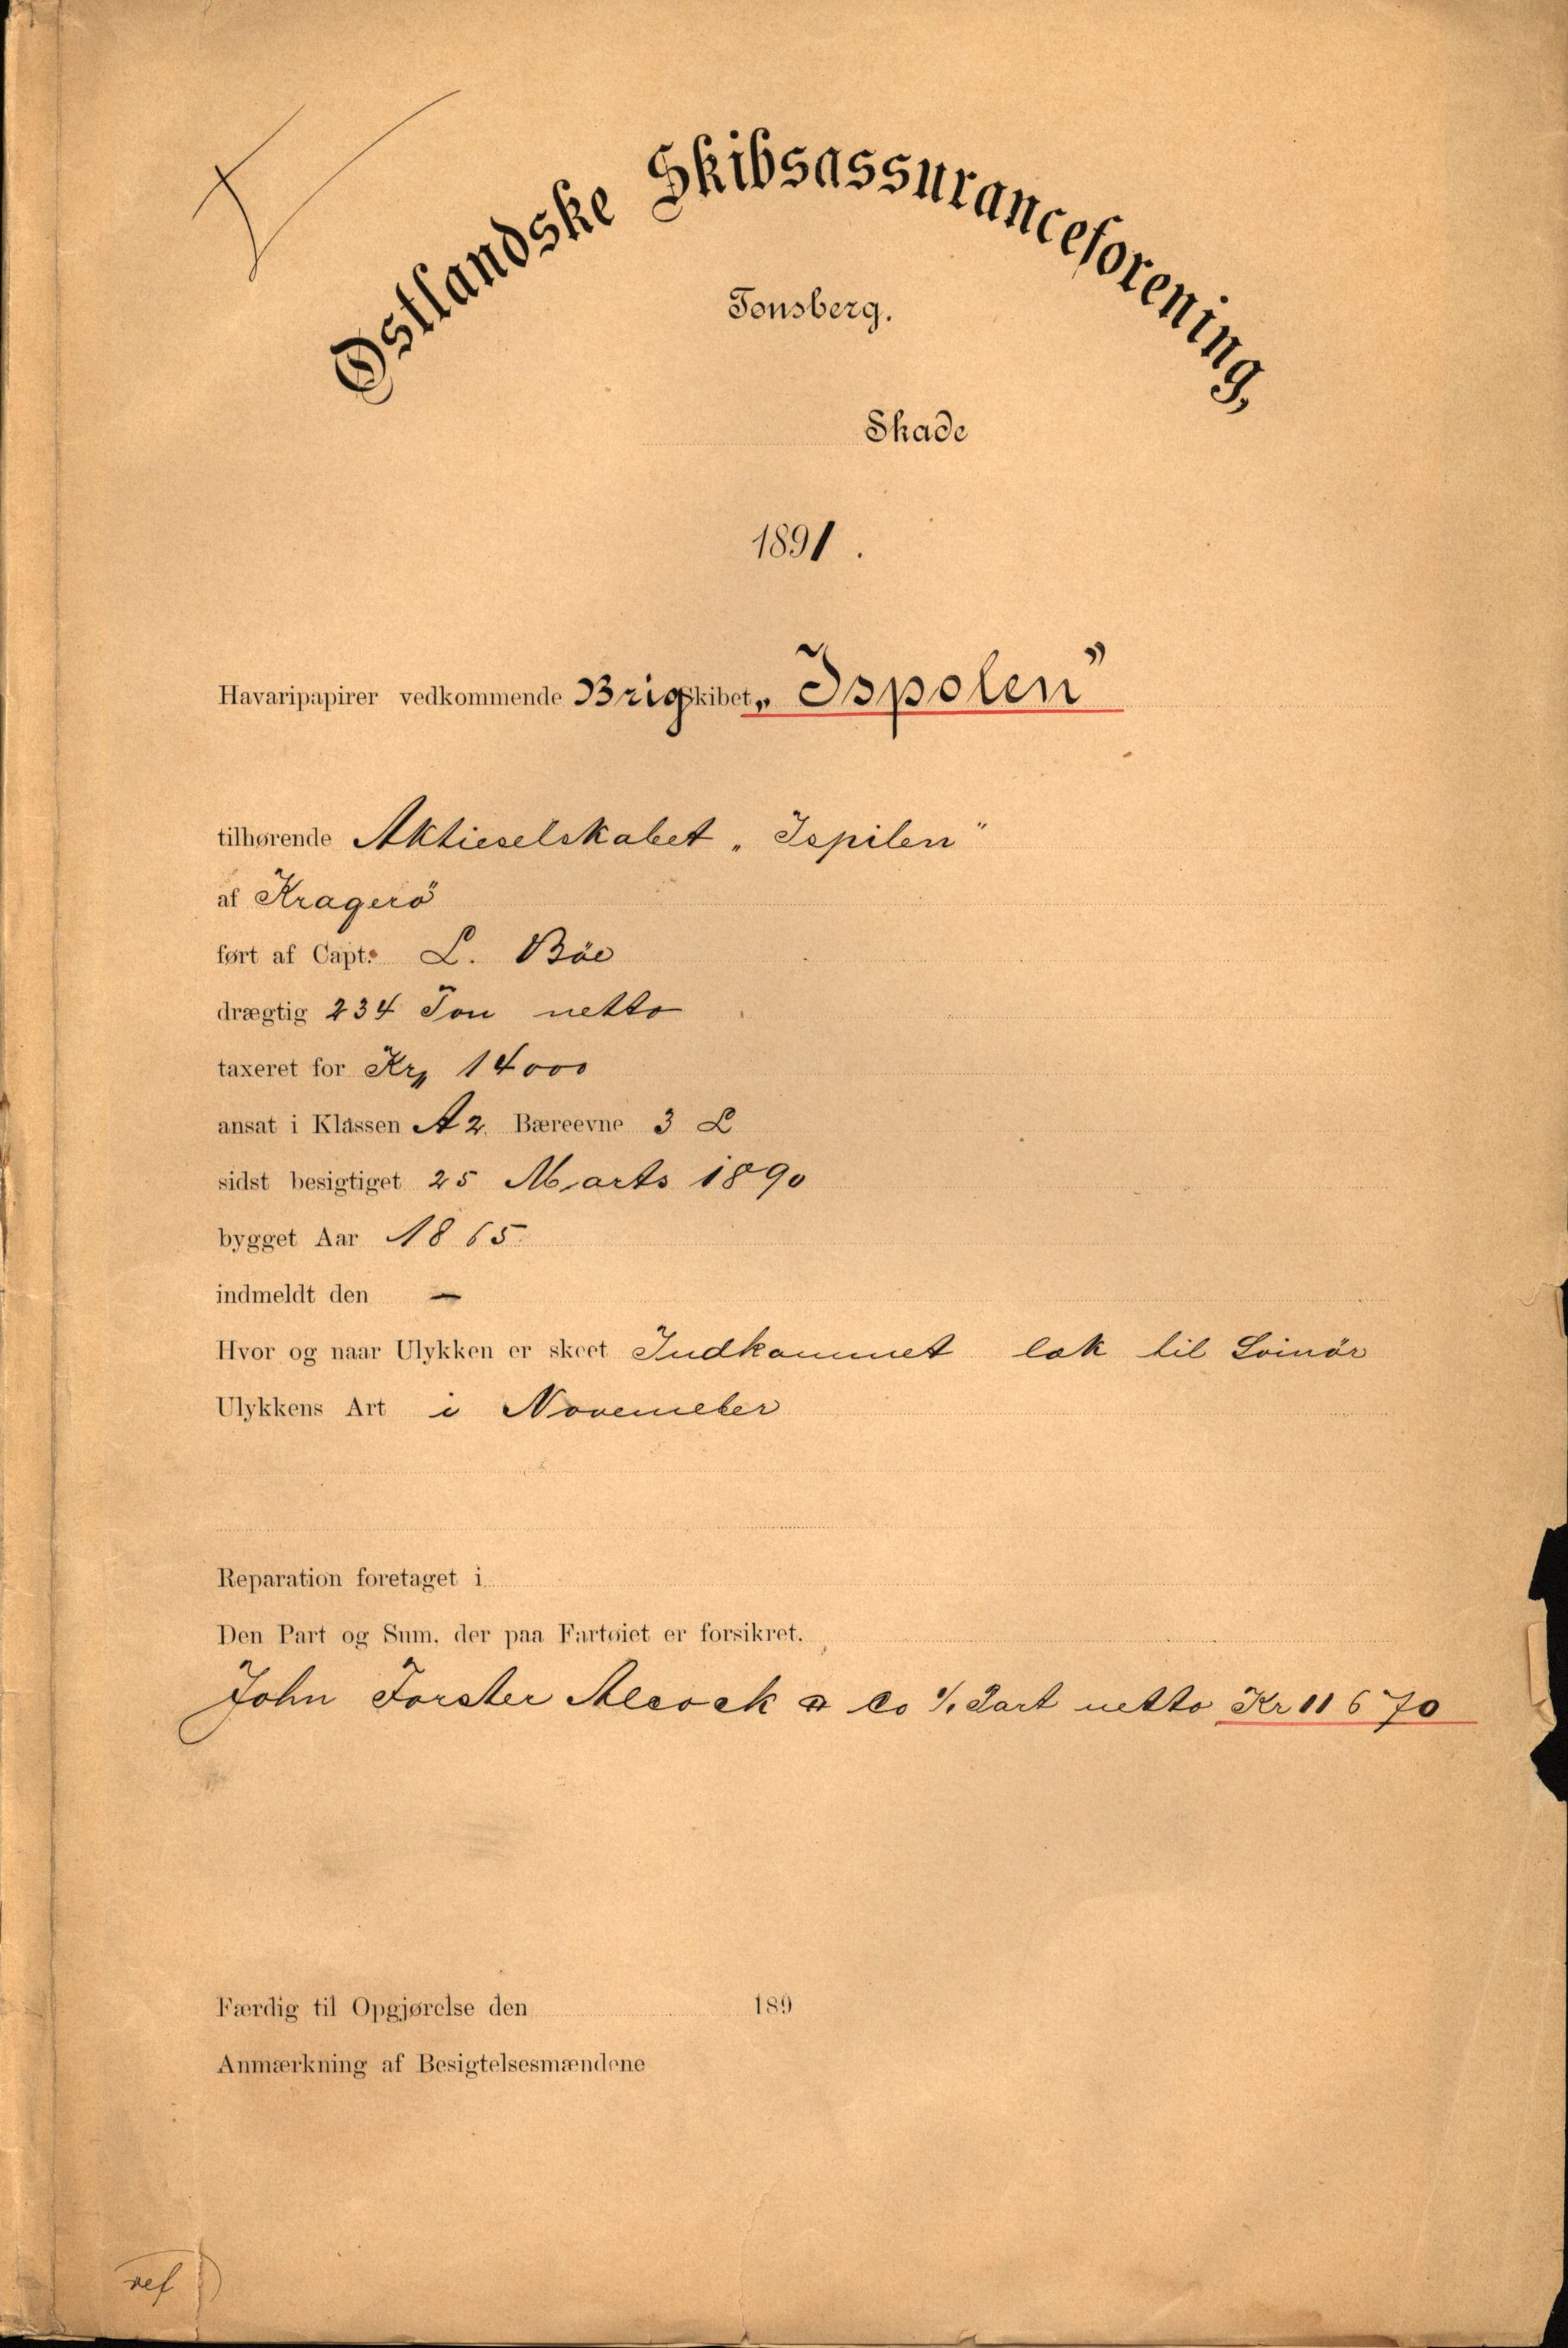 Østlandske Skibsassuranceforening,
Tønsberg.
Skade
1891.
Havaripapirer vedkommende Brigskibet „Ispolen”
tilhørende Aktieselskabet „Ispilen”
af Kragerö
ført af Capt. L. Böe
drægtig 234 Ton netto
taxeret for Kr, 14000
ansat i Klassen A2. Bæreevne 3 L
sidst besigtiget 25 Marts 1890
bygget Aar 1865
indmeldt den —
Hvor og naar Ulykken er skeet Indkommet læk til Svinör
Ulykkens Art i November
Reparation foretaget i
Den Part og Sum, der paa Fartøiet er forsikret.
John Forster Alcock & Co 1/1 Part netto Kr 11670
Færdig til Opgjørelse den 189
Anmærkning af Besigtelsesmændene